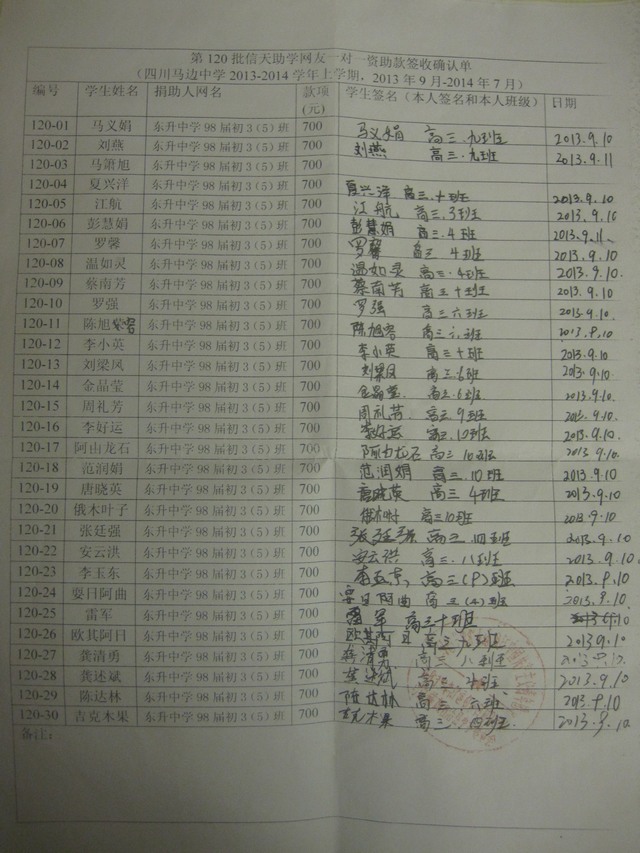 第 120 批信天助学网友一对一资助款签收确认单
（四川马边中学 2013-2014 学年上学期，2013 年 9 月-2014 年 7 月）
编号 学生姓名 捐助人网名 款项(元) 学生签名（本人签名和本人班级） 日期
120-01 马义娟 东升中学 98 届初 3（5）班 700 马义娟 高三.九班 2013.9.10
120-02 刘燕 东升中学 98 届初 3（5）班 700 刘燕 高三.九班 2013.9.11
120-03 马箫旭 东升中学 98 届初 3（5）班 700
120-04 夏兴洋 东升中学 98 届初 3（5）班 700 夏兴洋 高三.十班 2013.9.10
120-05 江航 东升中学 98 届初 3（5）班 700 江航 高三.3班 2013.9.10
120-06 彭慧娟 东升中学 98 届初 3（5）班 700 彭慧娟 高三.4班 2013.9.11
120-07 罗馨 东升中学 98 届初 3（5）班 700 罗馨 高三 4班 2013.9.10
120-08 温如灵 东升中学 98 届初 3（5）班 700 温如灵 高三.4班 2013.9.10.
120-09 蔡南芳 东升中学 98 届初 3（5）班 700 蔡南芳 高三十班 2013.9.10
120-10 罗强 东升中学 98 届初 3（5）班 700 罗强 高三六班 2013.9.10
120-11 陈旭 东升中学 98 届初 3（5）班 700 陈旭容 高三六班 2013.9.10
120-12 李小英 东升中学 98 届初 3（5）班 700 李小英 高三十班 2013.9.10
120-13 刘梁凤 东升中学 98 届初 3（5）班 700 刘梁凤 高三.6班 2013.9.10
120-14 金晶莹 东升中学 98 届初 3（5）班 700 金晶莹 高三.6班 2013.9.10.
120-15 周礼芳 东升中学 98 届初 3（5）班 700 周礼芳 高三9班 2013.9.10
120-16 李好运 东升中学 98 届初 3（5）班 700 李好运 高三.10班 2013.9.10
120-17 阿山龙石 东升中学 98 届初 3（5）班 700 高三10班 2013.9.10.
120-18 范润娟 东升中学 98 届初 3（5）班 700 范润娟 高三.10班 2013.9.10
120-19 唐晓英 东升中学 98 届初 3（5）班 700 唐晓英 高三 4班 2013.9.10
120-20 俄木叶子 东升中学 98 届初 3（5）班 700 高三10班 2013.9.10
120-21 张廷强 东升中学 98 届初 3（5）班 700 张廷强 高三.四班 2013.9.10
120-22 安云洪 东升中学 98 届初 3（5）班 700 安云洪 高三.八班 2013.9.10
120-23 李玉东 东升中学 98 届初 3（5）班 700 李玉东 高三 2013.9.10
120-24 耍日阿曲 东升中学 98 届初 3（5）班 700 耍日阿曲 高三(4)班 2013.9.10
120-25 雷军 东升中学 98 届初 3（5）班 700 雷军 高三十班
120-26 欧其阿日 东升中学 98 届初 3（5）班 700 欧其阿日 高三九班 2013.9.10
120-27 龚清勇 东升中学 98 届初 3（5）班 700 龚清勇 高三八班 2013.9.10
120-28 龚述斌 东升中学 98 届初 3（5）班 700 龚述斌 高三 2013.9.10
120-29 陈达林 东升中学 98 届初 3（5）班 700 陈达林 高三.六班 2013.9.10
120-30 吉克木果 东升中学 98 届初 3（5）班 700 吉克木果 高三.四班 2013.9.10
备注：